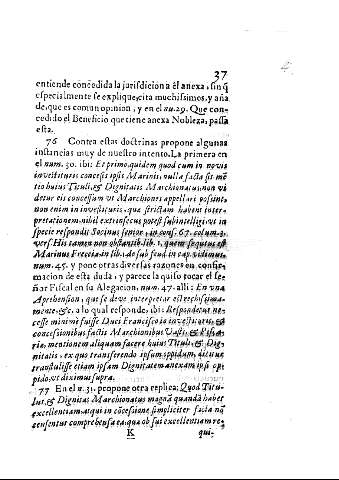 37
entiende concedida la jurisdicion a èl anexa, sinq̃
especialmente se explique, cita muchissimos, y aña
de, que es comun opinion, y en el nu.29. Que con-
cedido el Beneficio que tiene anexa Nobleza, passa
esta.
76 Contra estas doctrinas propone algunas
instancias muy de nuestro intento. La primera en
el num. 30. ibi: Et primo quidem quod cum in novis
investituris concessis ipsis Marinis, nulla facta sit mẽ
tio huius Tituli, & Dignitatis Marchionatus, non vi
detur eis concessum vt Marchiones appellari possint,
non enim in investituris, quæ strictam habent inter-
pretationem, huiuscemodi potest subintelligi vt in
specie respondit Socinus Iunior, in cons. 67. colum. 2.
vers. His tamen non obstantib. lib. 1. quem sequutus est
Marinus Freccia in lib. de sub feud. in cap. vidimus,
num. 45. y pone otras diversas razones en confir-
macion de esta duda, y parece la quiso tocar el se-
ñor Fiscal en su Alegacion, num. 47. alli: En vna
Aprehension, que se deve interpretar estrechissima-
mente, &c, a lo qual responde, ibi: Respondetur ne-
cesse minimè fuisse Duci Francisco in investituris, &
concessionibus factis Marchionibus Vasti, & Pisca-
riæ, mentionem aliquam facere huius Tituli, & Dig-
nitatis, ex quo transferendo ipsum oppidum, dicitur
transtulisse etiam ipsam Dignitatem anexam ipsi op-
pido, vt diximus supra.
77 En el n. 31. propone otra replica; Quod Titu-
lus, & Dignitas Marchionatus magnã quandã habet
excellentiam, atqui in cõcessione simpliciter facta nõ
censentur comprehensa ea, quæ ob sui excellentiam re-
K qui-